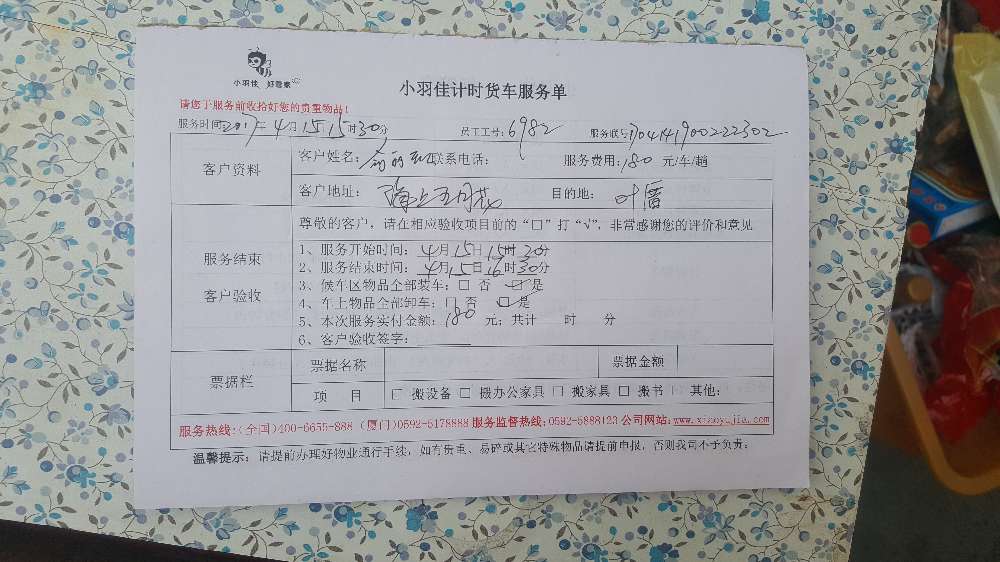 小羽佳 好慧象
小羽佳计时货车服务单
请您于服务前收拾好您的贵重物品!
服务时间:2017年4月15日15时30分 员工工号:6982 服务联号:
客户资料 客户姓名: 联系电话: 服务费用:180 元/车/趟
客户地址:海上五月花 目的地:
尊敬的客户,请在相应验收项目前的“□”打“√”,非常感谢您的评价和意见
服务结束
客户验收
1、服务开始时间:4月15日15时30分
2、服务结束时间:4月15日16时30分
3、候车区物品全部装车:□ 否 □是
4、车上物品全部卸车:□ 否 □是
5、本次服务实付金额:180 元;共计 时 分
6、客户验收签字:
票据栏 票据名称 票据金额
项 目 □ 搬设备 □ 搬办公家具 □ 搬家具 □ 搬书 □ 其他:
服务热线:(全国)400-6655-888 (厦门)0592-5178888 服务监督热线:0592-5888123 公司网站:www.xiaoyujia.com
温馨提示:请提前办理好物业通行手续,如有贵重、易碎或其它特殊物品请提前申报,否则我司不予负责;